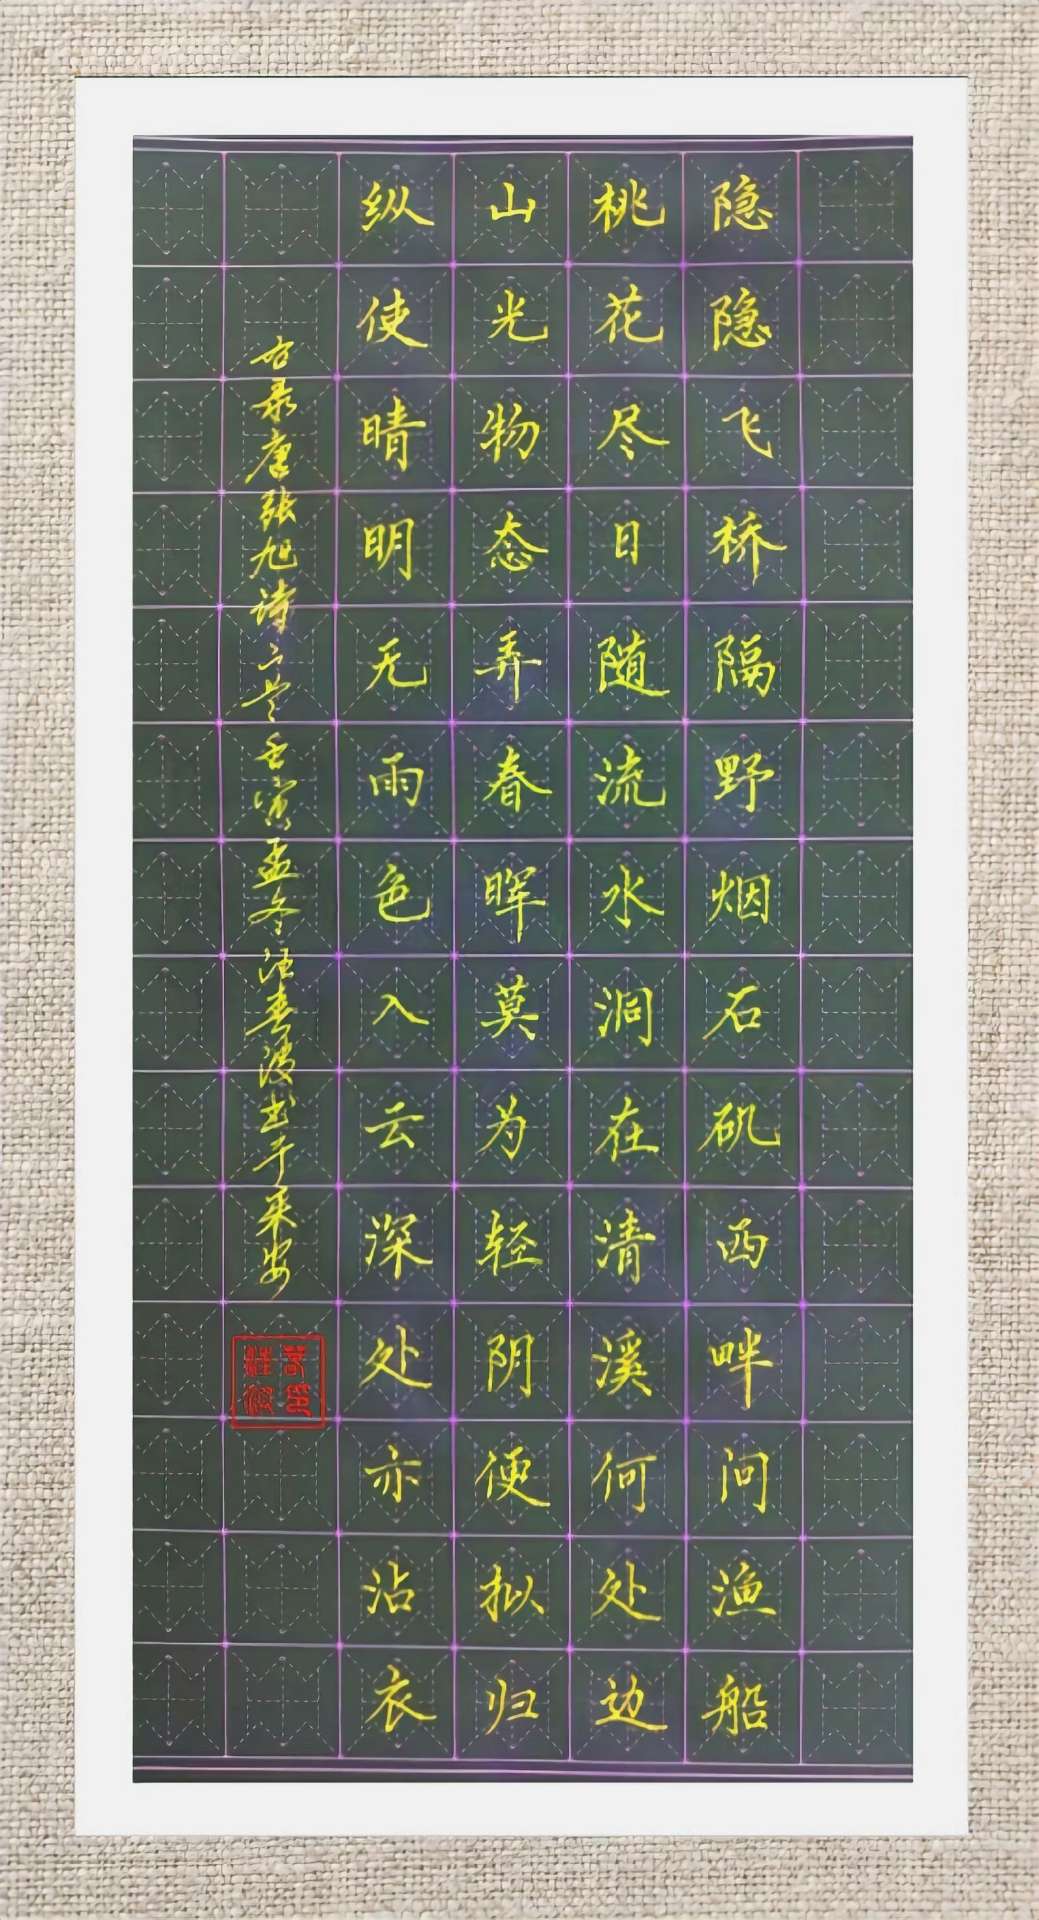 隐隐飞桥隔野烟石矶西畔问渔船
桃花尽日随流水洞在清溪何处边
山光物态弄春晖莫为轻阴便拟归
纵使晴明无雨色入云深处亦沾衣
右录唐张旭诗二首壬寅孟冬汪春波书于来安